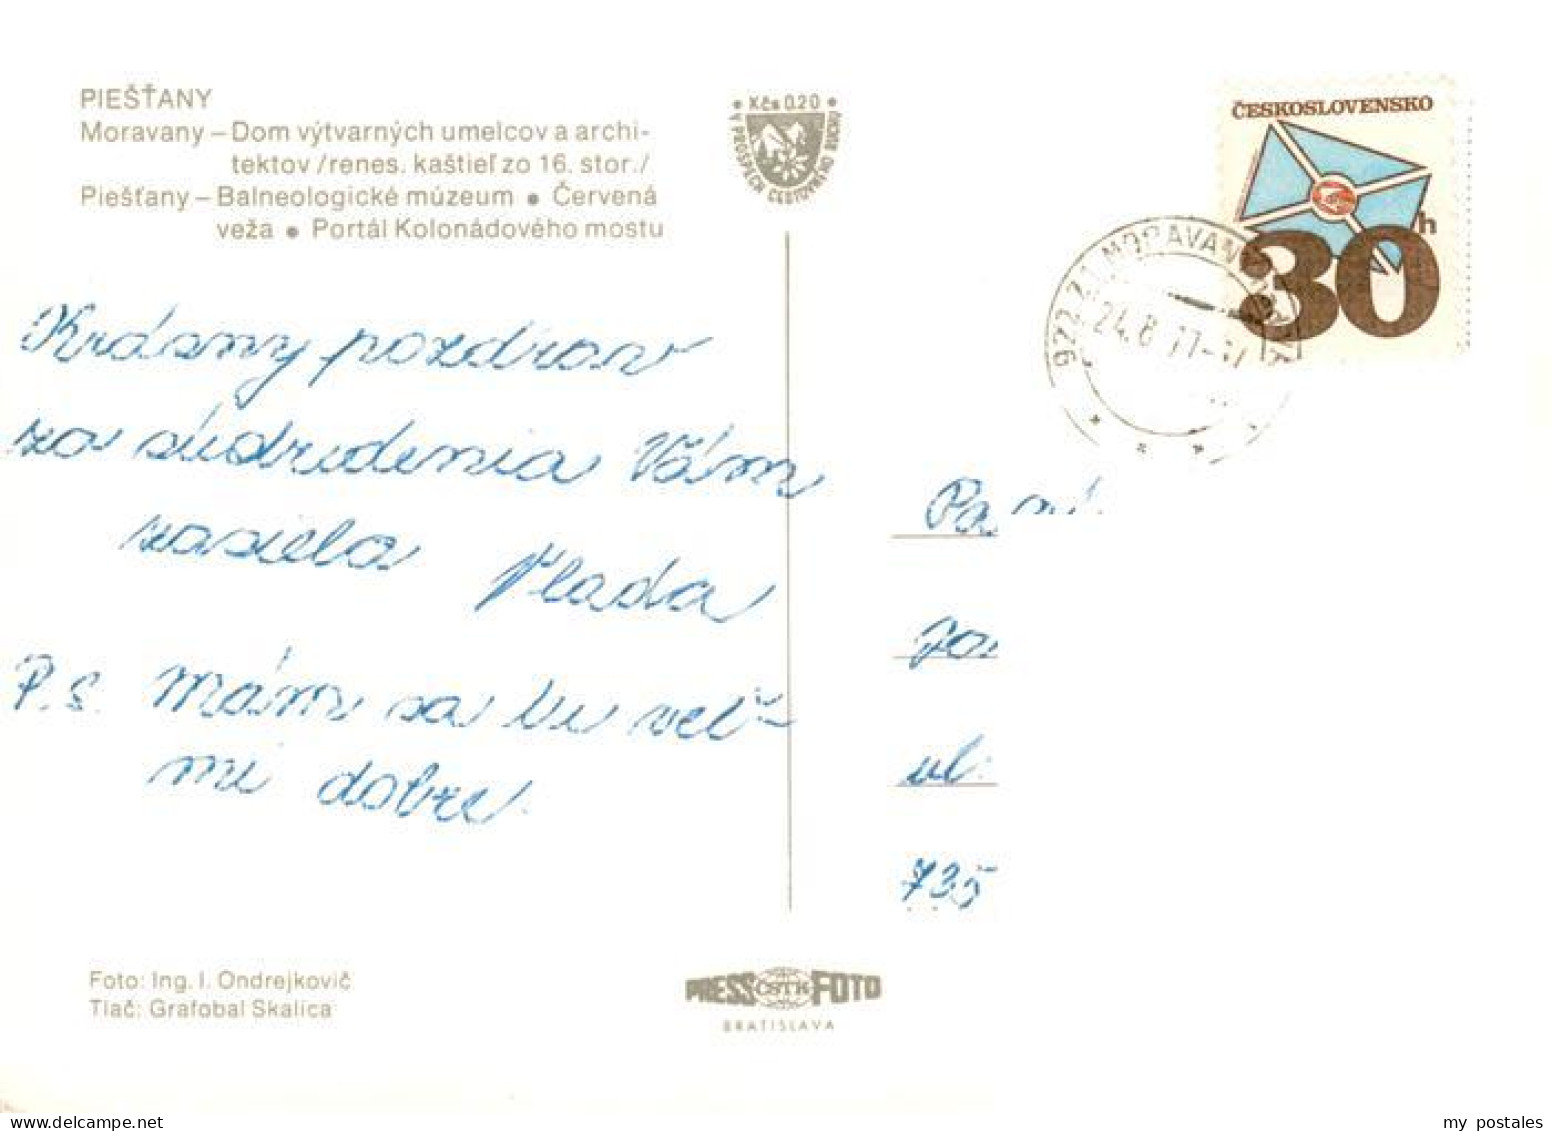 PIEŠŤANY
Moravany – Dom výtvarných umelcov a archi-
tektov /renes. kaštieľ zo 16. stor./
Piešťany – Balneologické múzeum ● Červená
veža ● Portál Kolonádového mostu
Kčs 0.20
V PROSPECH CESTOVNÉHO RUCHU
ČESKOSLOVENSKO
30h
922 21 MORAVANY
24.8.77-17
Krásny pozdrav
zo sústredenia Vám
zasiela Vlada
P.S. Mám sa tu veľ-
mi dobre.
ul.
735
Foto: Ing. I. Ondrejkovič
Tlač: Grafobal Skalica
PRESS ČSTK FOTO
BRATISLAVA
my postales